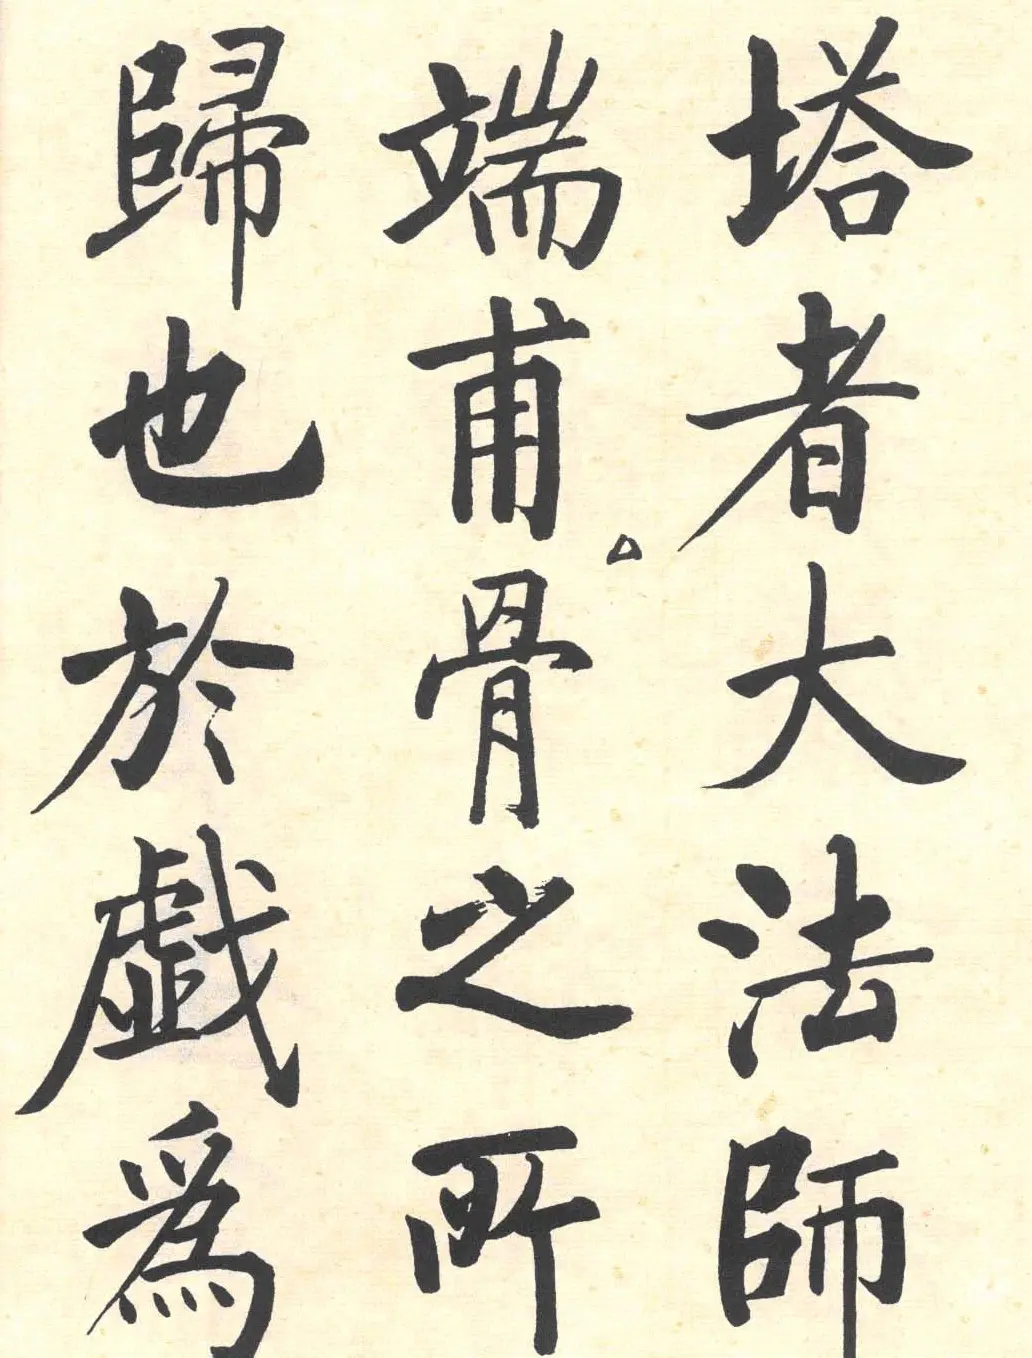 塔者大法師
端甫骨之所
歸也於戯爲